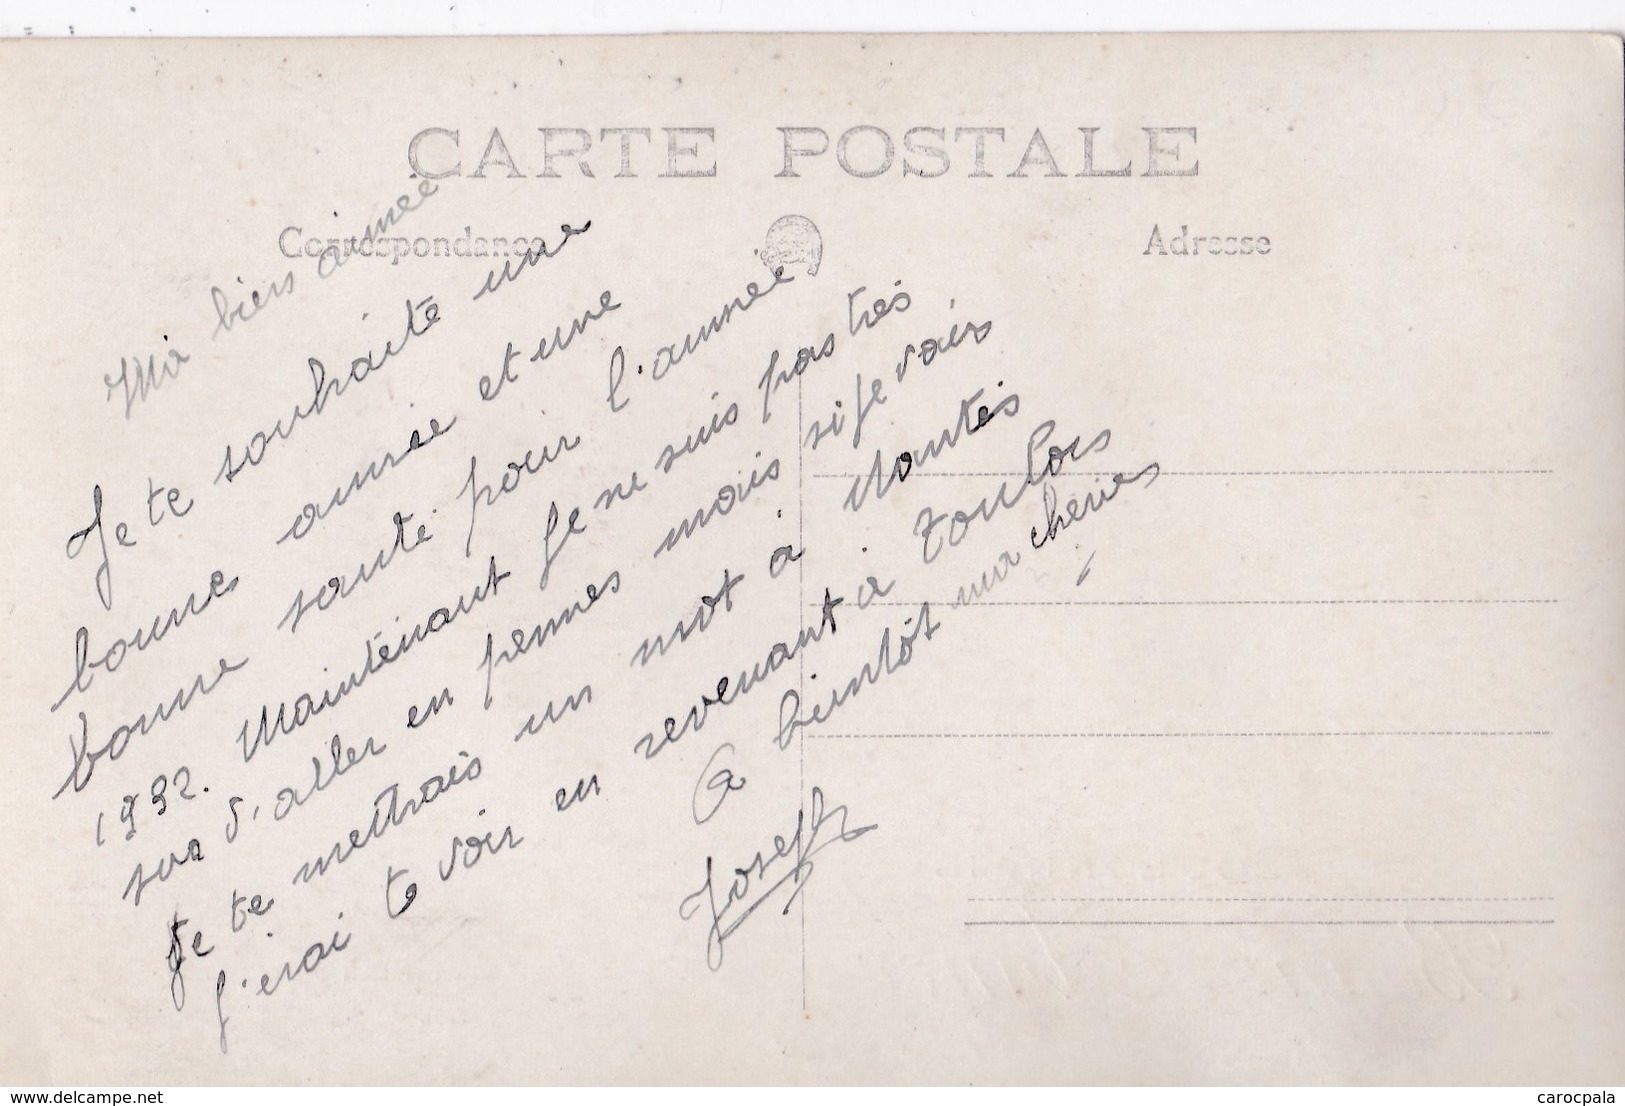 CARTE POSTALE
Correspondance
Adresse
Ma bien aimée
Je te souhaite une
bonne année et une
bonne santé pour l'année
1932. Maintenant je ne suis pas très
sur d'aller en permes mais si je vais
Je te mettrais un mot à Nantes
j'irai te voir en revenant à Toulon
A bientôt ma cheries
Joseph
www.delcampe.net
carocpala